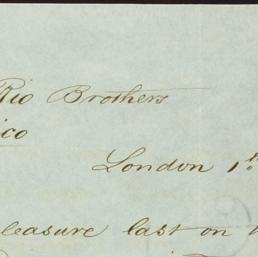 Rio Brothers
ico
London 1st
leasure last on